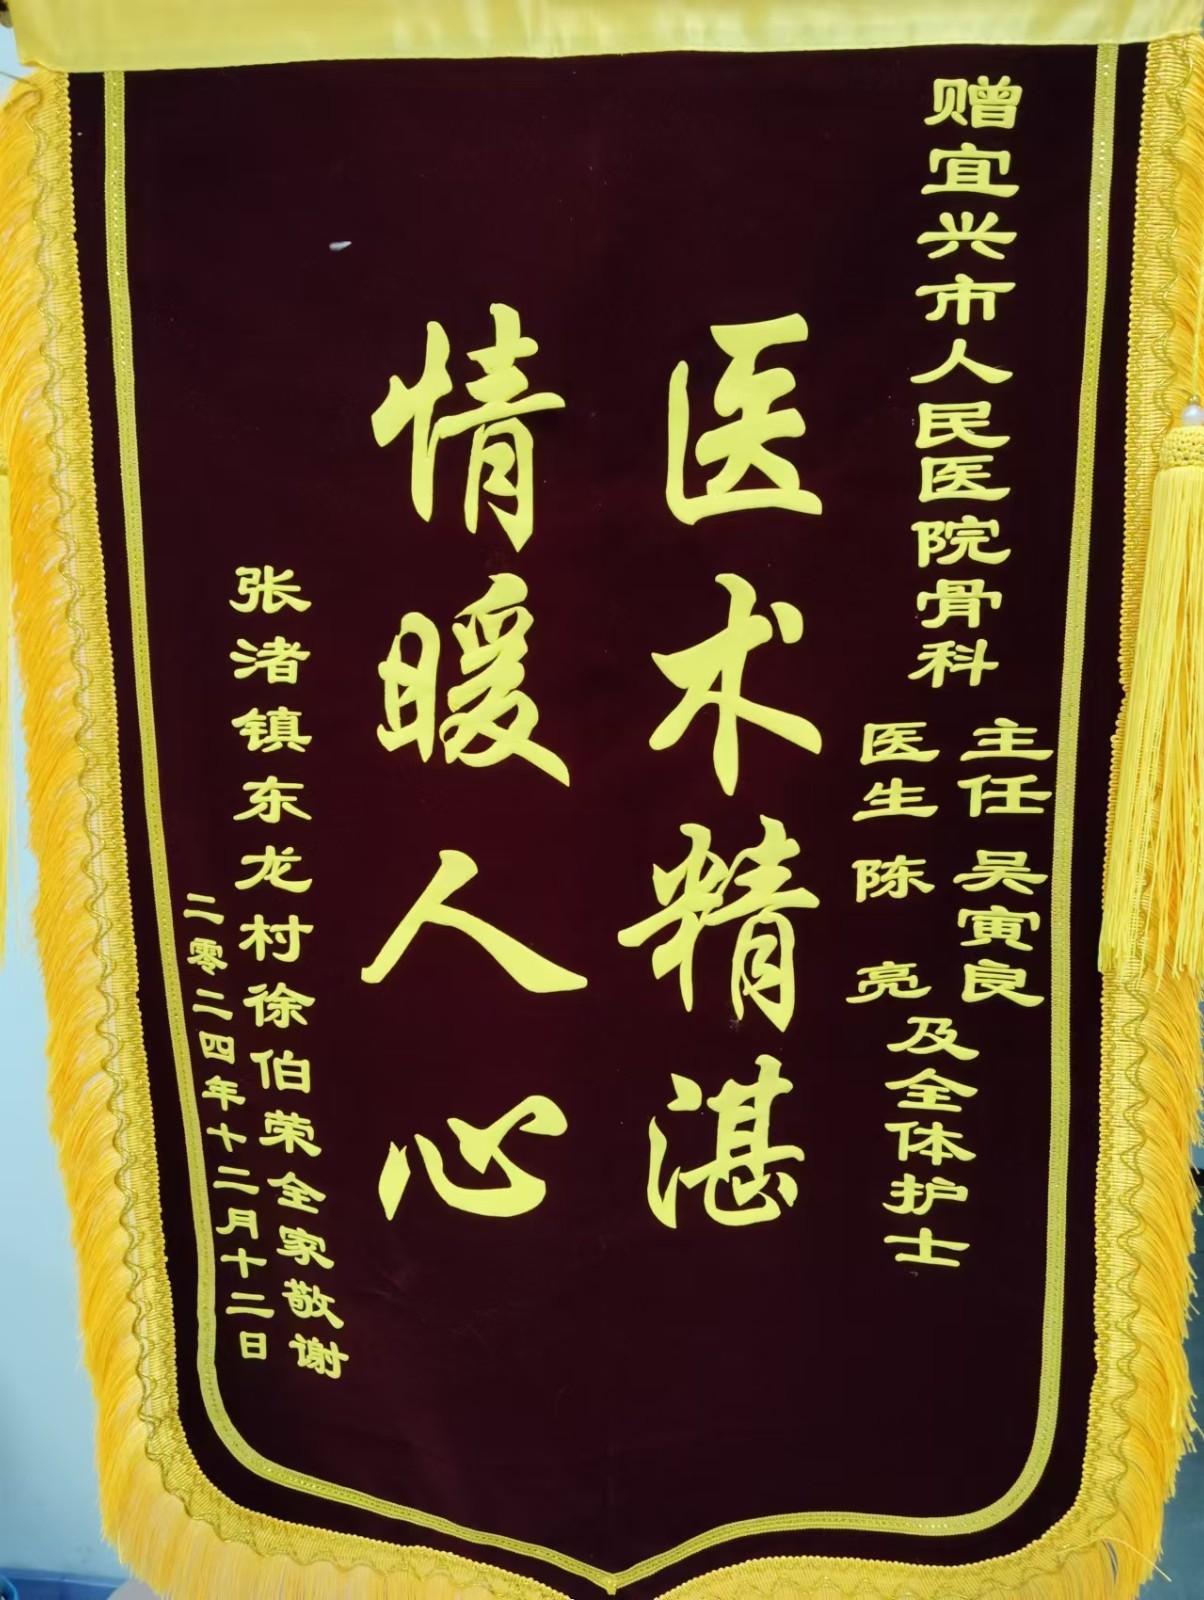 赠宜兴市人民医院骨科
主任 吴寅良
医生 陈 亮
及全体护士
医术精湛
情暖人心
张渚镇东龙村徐伯荣全家敬谢
二零二四年十二月十二日